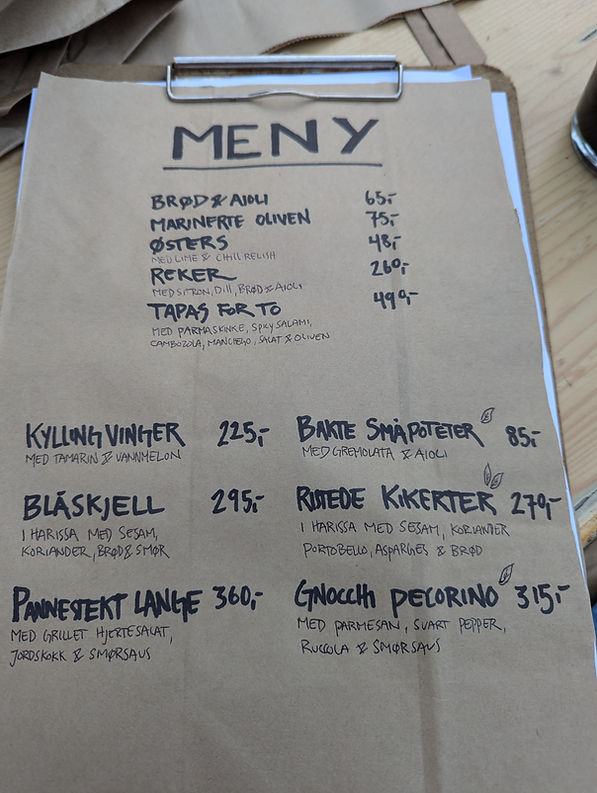 MENY
BRØD & AIOLI 65,-
MARINERTE OLIVEN 75,-
ØSTERS 48,-
MED LIME & CHILI RELISH
REKER 260,-
MED SITRON, DILL, BRØD & AIOLI
TAPAS FOR TO 490,-
MED PARMASKINKE, SPICY SALAMI,
CAMBOZOLA, MANCHEGO, SALAT & OLIVEN
KYLLINGVINGER 225,-
MED TAMARIN & VANNMELON
BLÅSKJELL 295,-
I HARISSA MED SESAM,
KORIANDER, BRØD & SMØR
PANNESTEKT LANGE 360,-
MED GRILLET HJERTESALAT,
JORDSKOKK & SMØRSAUS
BAKTE SMÅPOTETER 85,-
MED GREMOLATA & AIOLI
RISTEDE KIKERTER 270,-
I HARISSA MED SESAM, KORIANDER
PORTOBELLO, ASPARGES & BRØD
GNOCCHI PECORINO 315,-
MED PARMESAN, SVART PEPPER,
RUCCOLA & SMØRSAUS